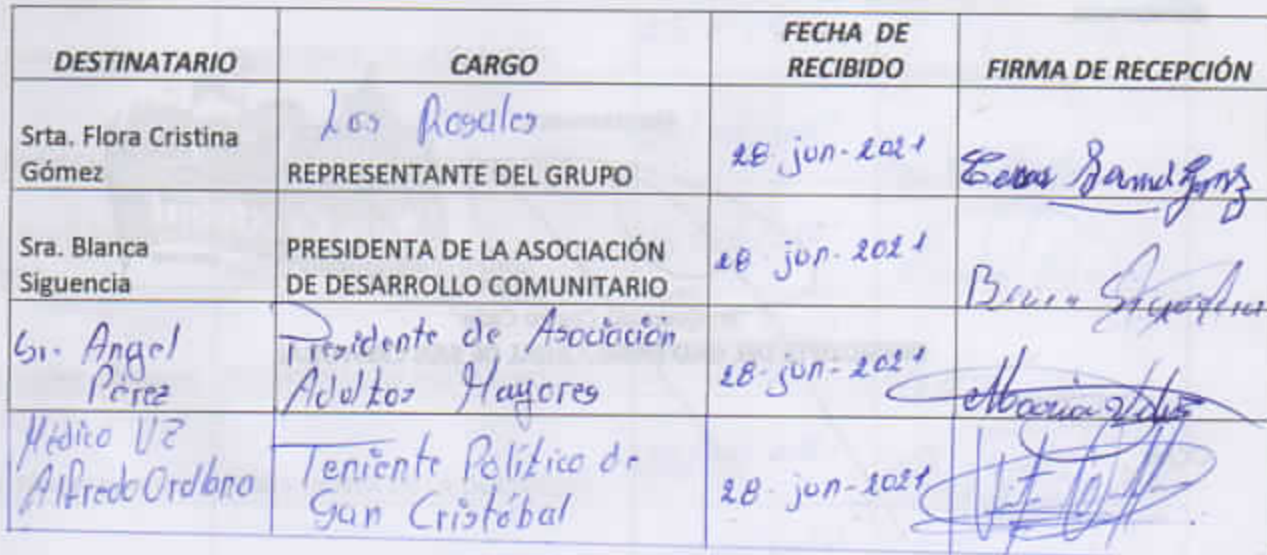 DESTINATARIO CARGO FECHA DE RECIBIDO FIRMA DE RECEPCIÓN
Srta. Flora Cristina
Gómez
Los Rosales
REPRESENTANTE DEL GRUPO
28 jun-2021
Sra. Blanca
Siguencia
PRESIDENTA DE LA ASOCIACIÓN
DE DESARROLLO COMUNITARIO
28-jun-2021
Sr. Angel
Pérez
Presidente de Asociación
Adultos Mayores
28-jun-2021
Médico
Alfredo Orellana
Teniente Político de
San Cristóbal
28-jun-2021